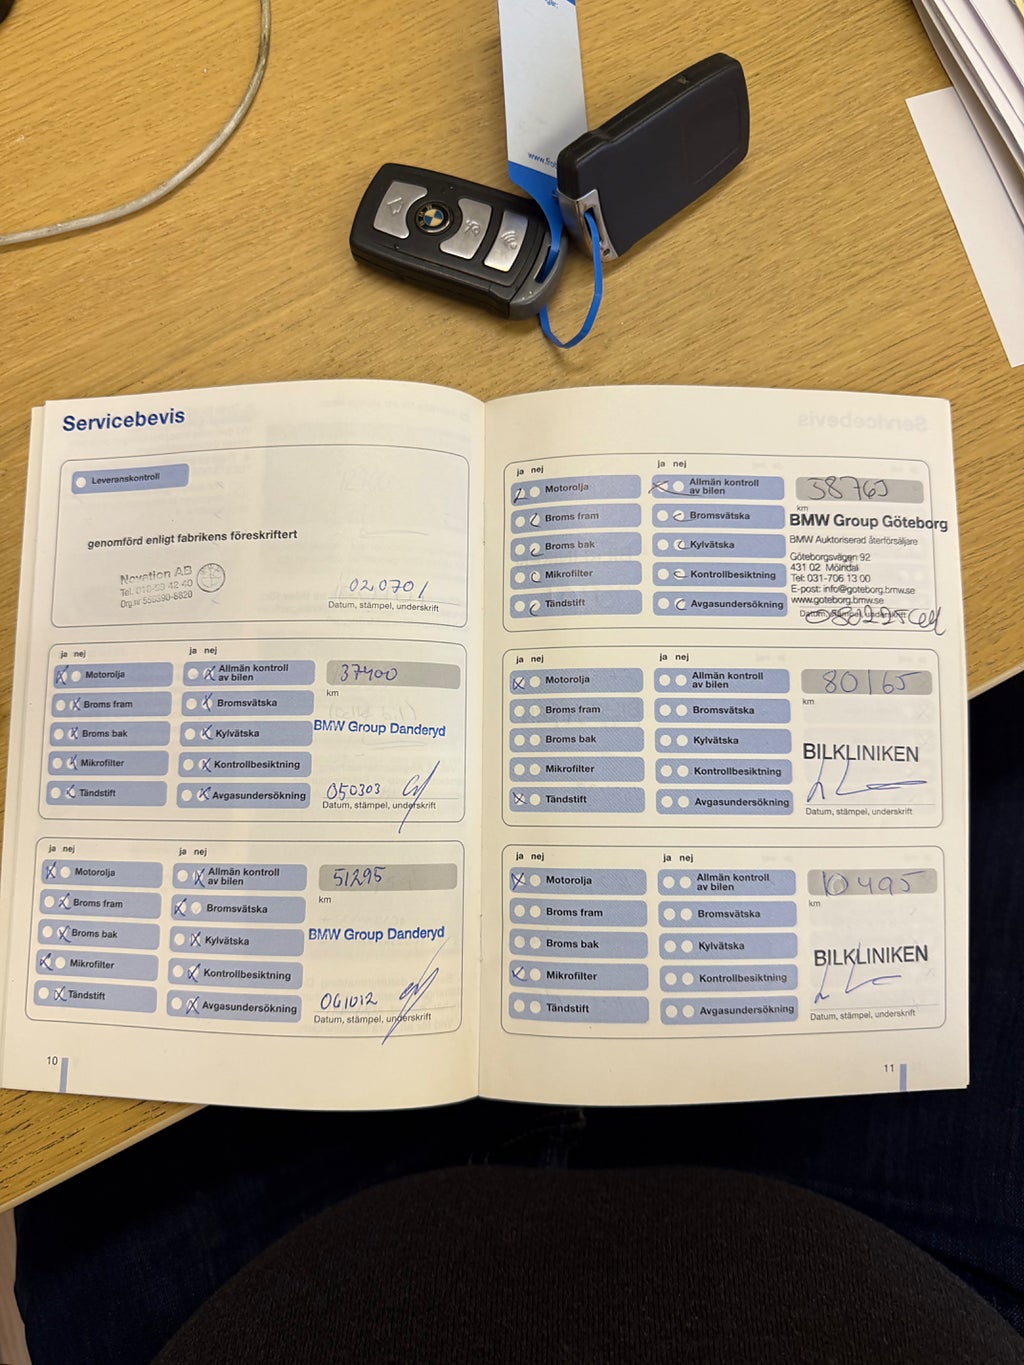 Servicebevis
Leveranskontroll
genomförd enligt fabrikens föreskriftert
Novation AB
020701
Datum, stämpel, underskrift
ja nej
ja nej
Motorolja
Allmän kontroll
av bilen
37400
km
Broms fram
Bromsvätska
BMW Group Danderyd
Broms bak
Kylvätska
Mikrofilter
Kontrollbesiktning
050303
Tändstift
Avgasundersökning
Datum, stämpel, underskrift
ja nej
ja nej
Motorolja
Allmän kontroll
av bilen
51295
km
Broms fram
Bromsvätska
BMW Group Danderyd
Broms bak
Kylvätska
Mikrofilter
Kontrollbesiktning
061012
Tändstift
Avgasundersökning
Datum, stämpel, underskrift
10
ja nej
ja nej
Motorolja
Allmän kontroll
av bilen
km
Broms fram
Bromsvätska
BMW Group Göteborg
BMW Auktoriserad återförsäljare
Broms bak
Kylvätska
Göteborgsvägen 92
431 02 Mölndal
Mikrofilter
Kontrollbesiktning
Tel: 031-706 13 00
E-post: info@goteborg.bmw.se
www.goteborg.bmw.se
Tändstift
Avgasundersökning
Datum, stämpel, underskrift
ja nej
ja nej
Motorolja
Allmän kontroll
av bilen
80165
km
Broms fram
Bromsvätska
Broms bak
Kylvätska
BILKLINIKEN
Mikrofilter
Kontrollbesiktning
Tändstift
Avgasundersökning
Datum, stämpel, underskrift
ja nej
ja nej
Motorolja
Allmän kontroll
av bilen
10495
km
Broms fram
Bromsvätska
Broms bak
Kylvätska
BILKLINIKEN
Mikrofilter
Kontrollbesiktning
Tändstift
Avgasundersökning
Datum, stämpel, underskrift
11